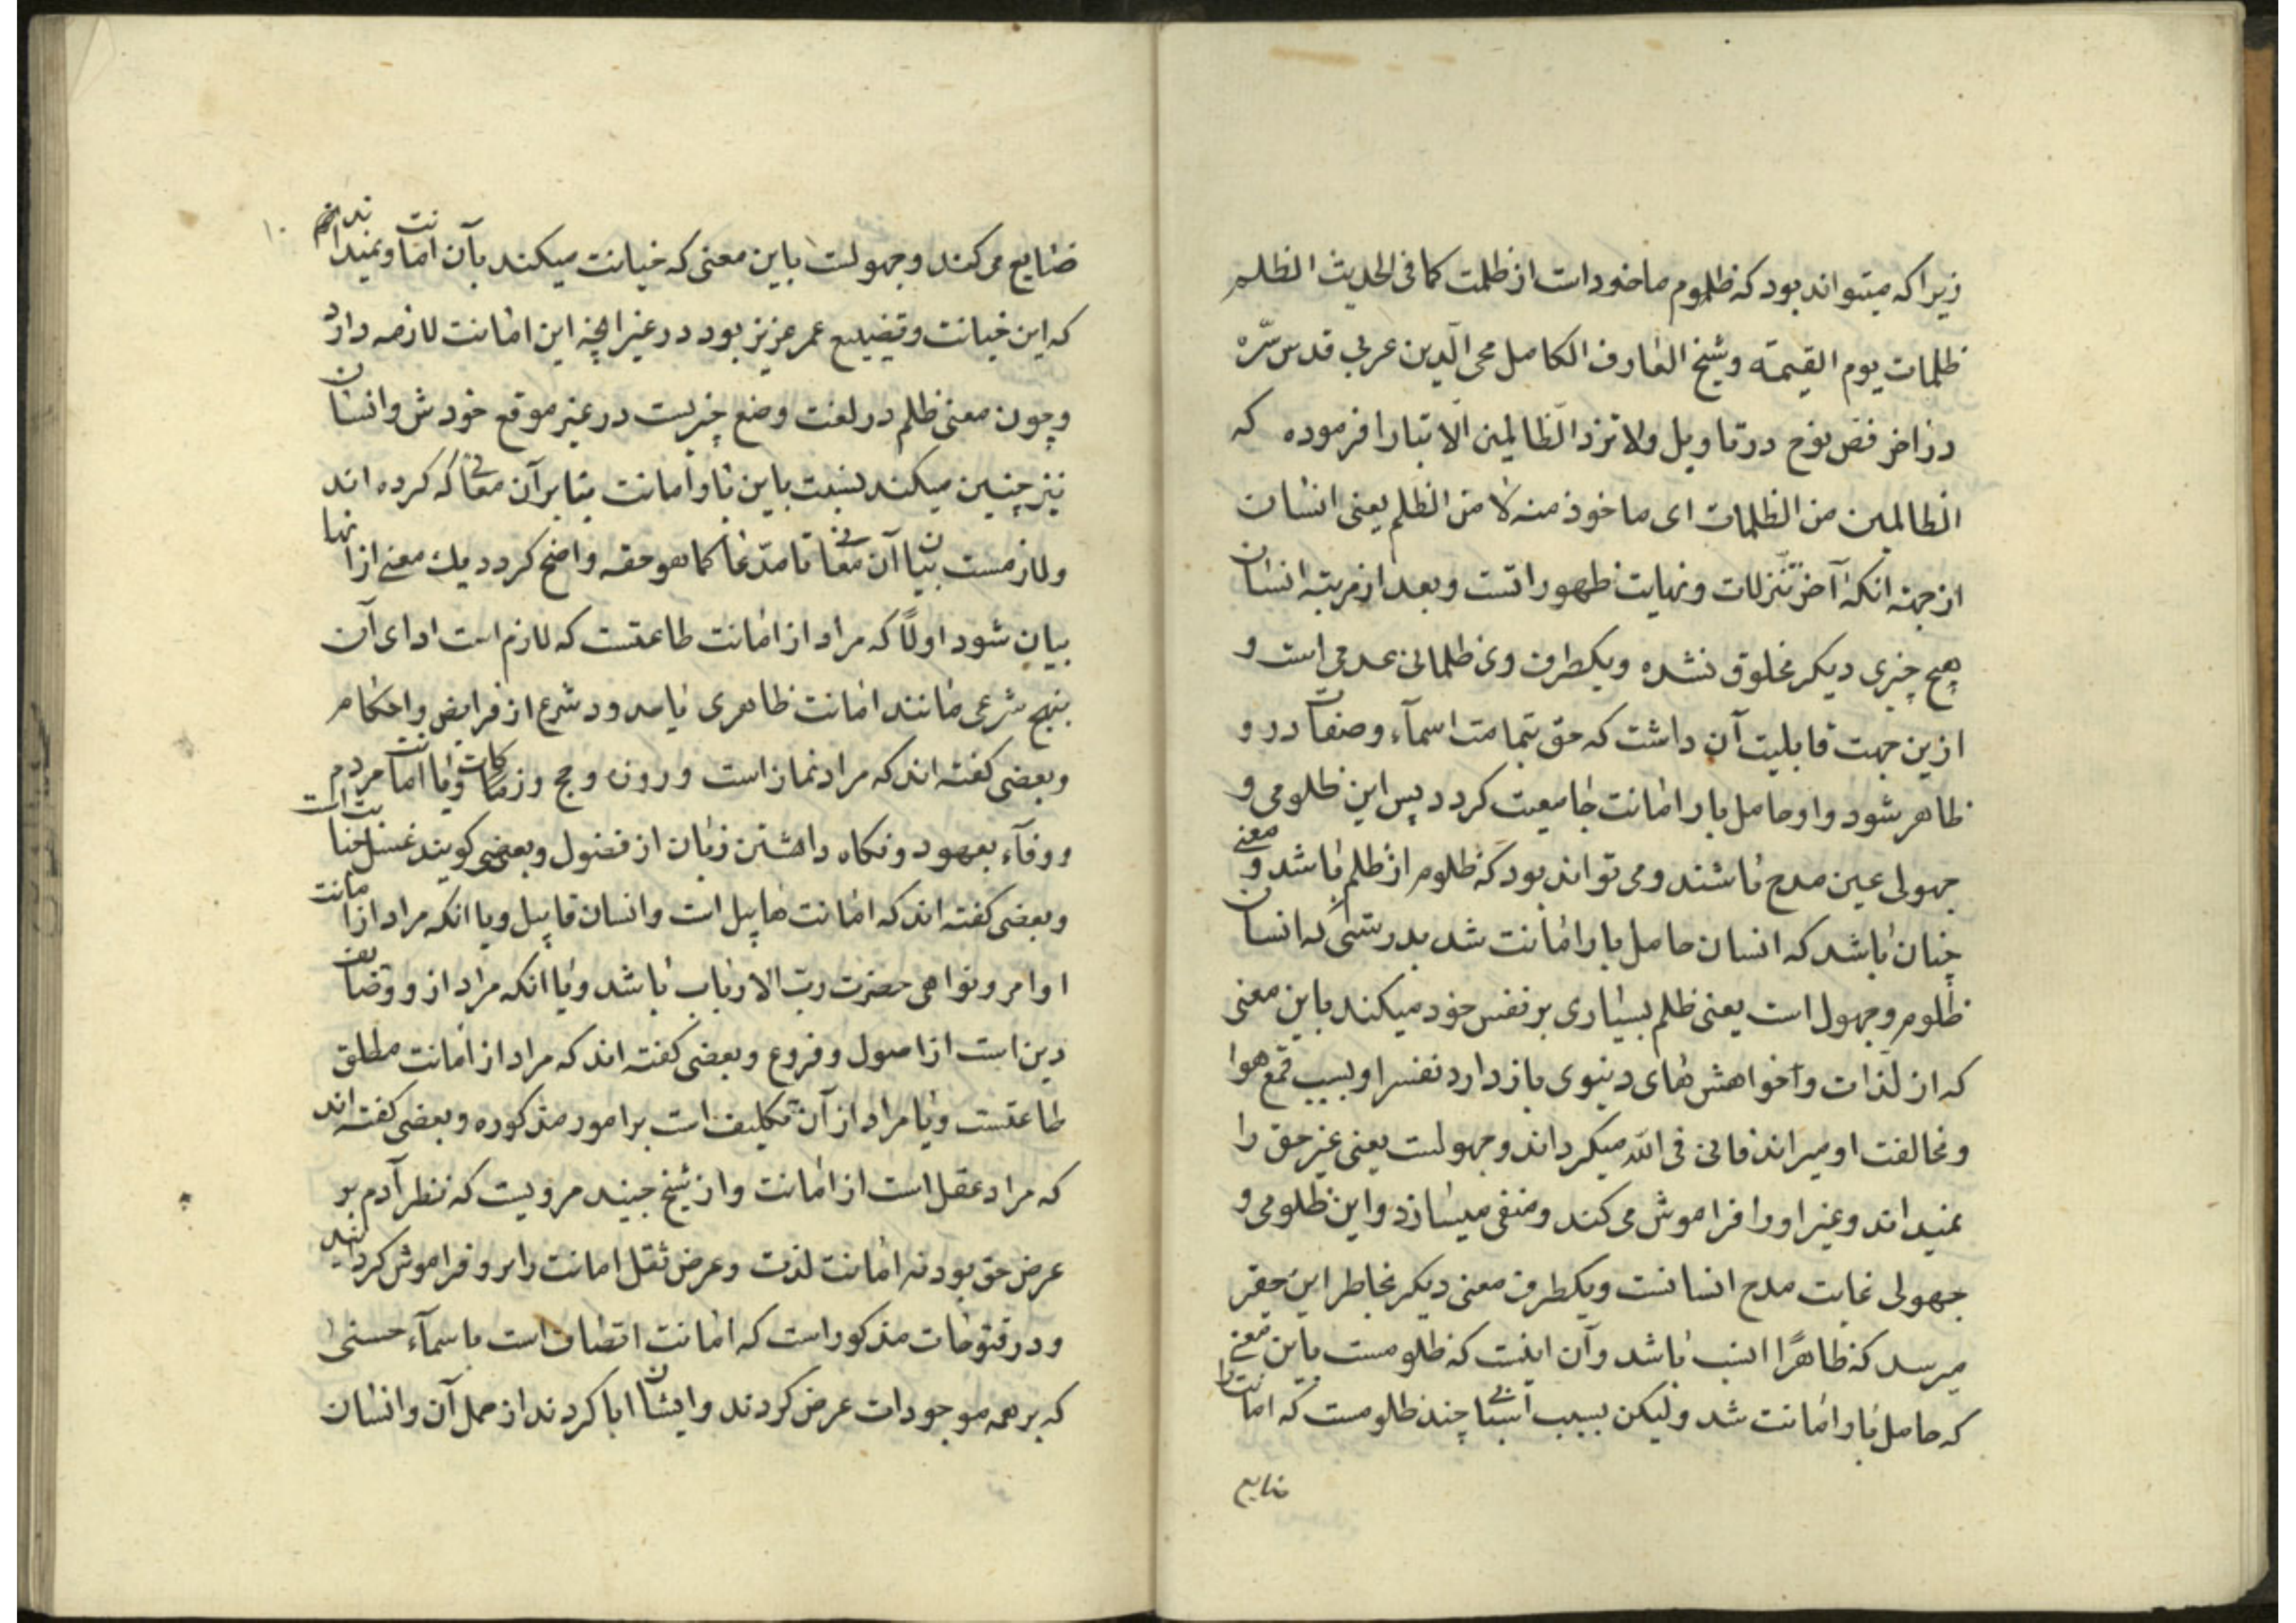 زیراکه میتواند بود که ظلوم ماخوداست از ظلمت کما فی الحدیث الظلم
ظلمات یوم القیمة وشیخ العارف الکامل محی الدین عربی قدس سرّه
در اخر فص نوح در تاویل ولا تزد الظالمین الا تبارا فرموده که
الظالمین من الظلمات ای ماخوذ منه لا من الظلم یعنی انسان
از جهته انکه آخر تنزلات ونهایت ظهوراتست وبعد از مرتبه انسان
هیچ چیزی دیکر مخلوق نشده ویکطرف وی ظلمانی عدمی است و
ازین جهت قابلیت آن داشت که حق بتمامت اسمآء وصفات درو
ظاهر شود واو حامل بار امانت جامعیت کردد پس این ظلومی و
جهولی عین مدح باشند ومی تواند بود که ظلوم از ظلم باشد ومعنی
چنان باشد که انسان حامل بار امانت شد بدرستی که انسان
ظلوم وجهول است یعنی ظلم بسیاری بر نفس خود میکند باین معنی
که از لذات وخواهش های دنیوی باز دارد نفسرا وبسبب قمع هوا
ومخالفت او میراند فانی فی الله میکرداند وجهولست یعنی غیر حق را
نمیداند وغیر اورا فراموش می کند ومنفی میسازد واین ظلومی و
جهولی غایت مدح انسانست ویکطرف معنی دیکر بخاطر این حقر
میرسد که ظاهرًا انسب باشد وآن اینست که ظلومست باین معنی
که حامل بار امانت شد ولیکن بسبب اسبابی چند ظلومست که امانت را
ضایع
۱۰
ضایع می کند وجهولست باین معنی که خیانت میکند بآن امانت ونمیداند
که این خیانت وتضییع عمر عزیز بود در غیر انچه این امانت لازمه دارد
وچون معنی ظلم در لغت وضع چیزیست در غیر موقع خودش وانسان
نیز چنین میکند نسبت باین بار امانت بنابر آن معانی که کرده اند
ولازمست بیان آن معانی تا مدّعا کما هو حقه واضح کردد یك معنی از انها
بیان شود اولًا که مراد از امانت طاعتست که لازم است ادای آن
بنهج شرعی مانند امانت ظاهری یا حدود شرع از فرایض واحکام
وبعضی کفته اند که مراد نماز است وروزه وحج وزکات ویا امانت مردم
ووفآء بعهود ونکاه داشتن زبان از فضول وبعضی کویند غسل جنابت است
وبعضی کفته اند که امانت هابیل است وانسان قابیل ویا انکه مراد از امانت
اوامر ونواهی حضرت رب الارباب باشد ویا انکه مراد ازو
دین است از اصول وفروع وبعضی کفته اند که مراد از امانت مطلق
طاعتست ویا مراد از آن تکلیف است بر امور مذکوره وبعضی کفته اند
که مراد عقل است از امانت واز شیخ جنید مرویست که نظر آدم بر
عرض حق بود نه امانت لذت وعرض ثقل امانت را برو فراموش کردانید
ودر فتوحات مذکور است که امانت اتصاف است باسمآء حسنی
که بر همه موجودات عرض کردند وایشان ابا کردند از حمل آن وانسان